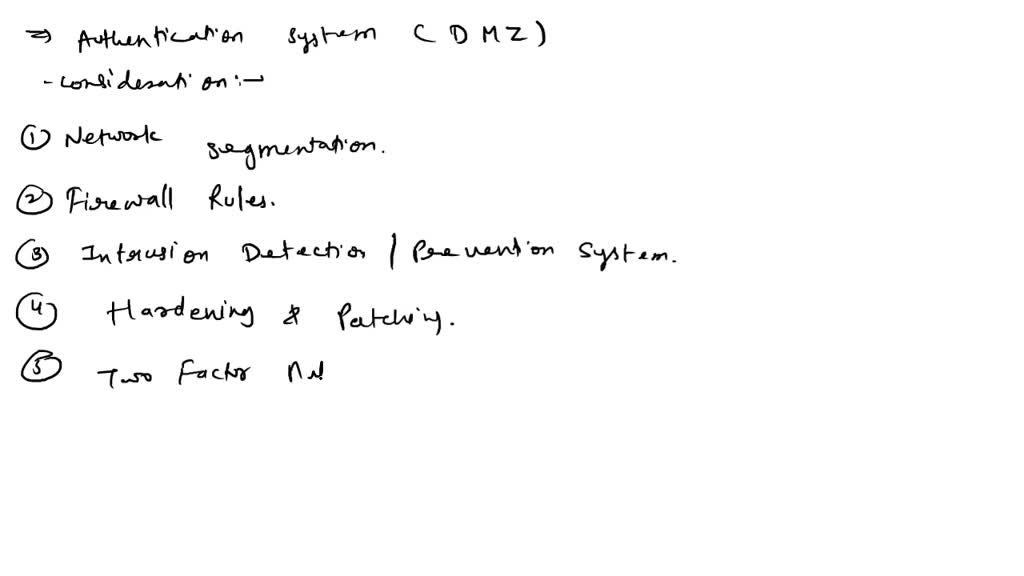 ⇒ Authentication system (DMZ)
- Consideration :-
① Network segmentation.
② Firewall Rules.
③ Intrusion Detection / Prevention System.
④ Hardening & Patching.
⑤ Two Factor